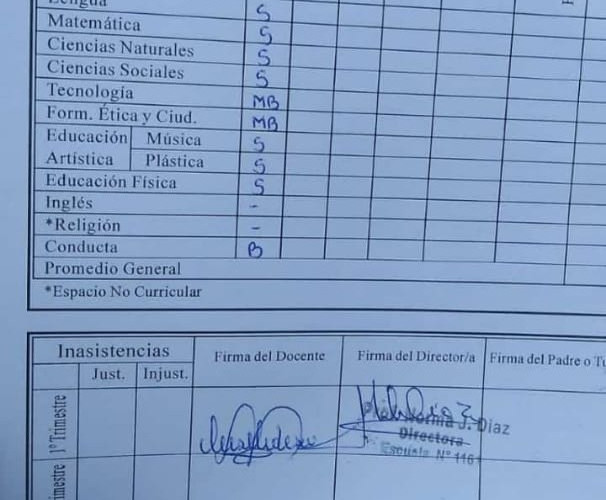 Lengua S
Matemática S
Ciencias Naturales S
Ciencias Sociales S
Tecnología MB
Form. Ética y Ciud. MB
Educación Artística
Música S
Plástica S
Educación Física S
Inglés -
*Religión -
Conducta B
Promedio General
*Espacio No Curricular
Inasistencias Firma del Docente Firma del Director/a Firma del Padre o Tu
Just. Injust.
1º Trimestre
J. Diaz
Directora
Escuela Nº 1161
imestre